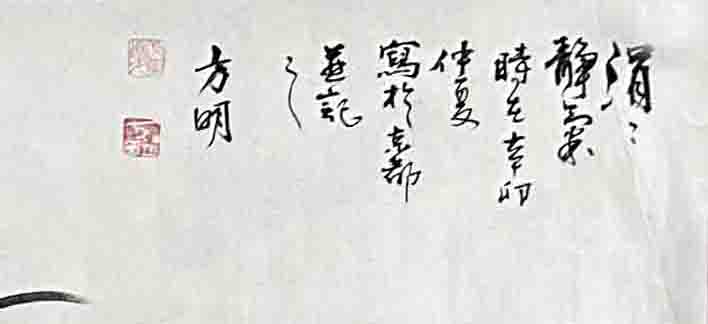 涓々
靜
時在辛卯
仲夏
寫於京都
並記
之
方明